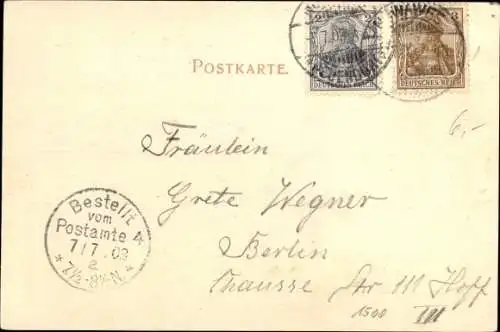 POSTKARTE.
DEUTSCHES REICH
DEUTSCHES REICH
6,-
Fräulein
Grete Wegner
Berlin
Chausse Str 111 Hoff
1500 III
Bestellt
vom
Postamte 4
7/7.03
* 7½-8½N. *